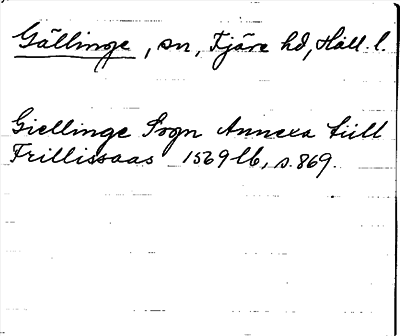 Gällinge, sn, Fjäre hd, Hall. l.
Giellinge Sogn Annexa till
Frillissaas 1569 lb, s. 869.